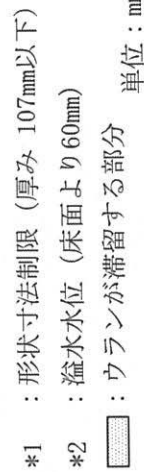 *1 ：形状寸法制限（厚み 107mm以下）
*2 ：溢水水位（床面より60mm）
：ウランが滞留する部分
単位：mm